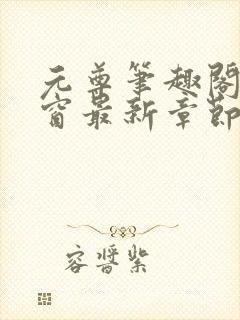 元尊笔趣阁
窗最新章节
容酱紫